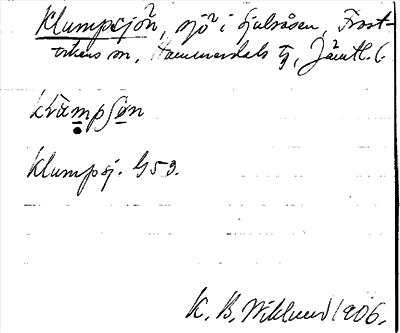 Klumpsjön, sjö i Gulsåsen, Frost-
vikens sn, Hammerdals tg, Jämtl. l.
Klumpsj. G 53.
K. B. Wiklund 1906.